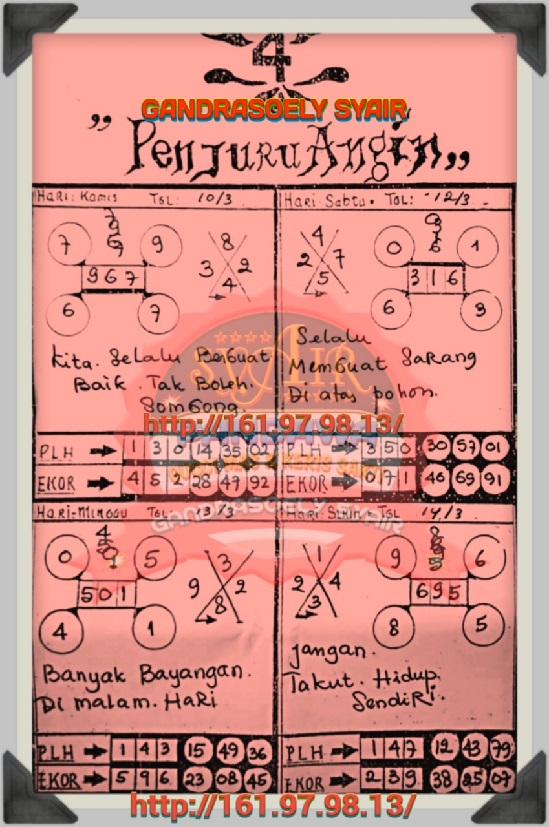 4
GANDRASOELY SYAIR
"Penjuru Angin"
Hari: Kamis TGL: 10/3
7 9
967
6 7
8
3 2
4
Kita. Selalu Berbuat
Baik. Tak Boleh.
Sombong.
Hari Sabtu. TGL: 12/3
0 1
316
6 3
4
2 7
5
Selalu
Membuat Sarang
Di atas pohon.
http://161.97.98.13/
PLH 1 3 0 14 35 02
EKOR 4 5 2 28 49 92
PLH 3 5 0 30 57 01
EKOR 0 7 1 46 69 91
SYAIR
GANDRASOELY SYAIR
Hari-Minggu TGL 13/3
0 5
501
4 1
3
9 2
8
Banyak Bayangan.
Di malam. Hari
Hari: Senin TGL 14/3
9 6
695
8 5
1
2 4
3
jangan.
Takut. Hidup.
Sendiri.
PLH 1 4 3 15 49 36
EKOR 5 9 6 23 08 45
PLH 1 4 7 12 43 79
EKOR 2 3 9 38 25 07
http://161.97.98.13/